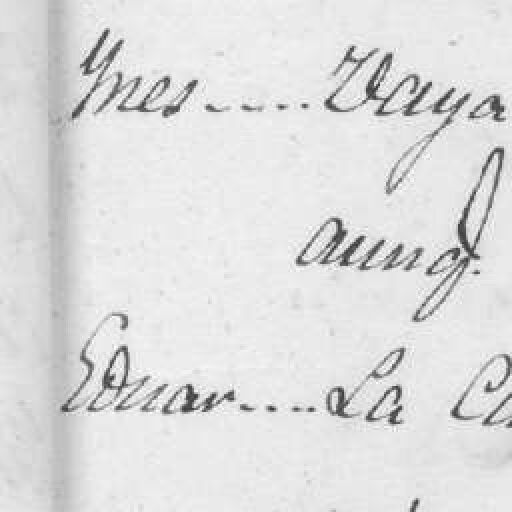 Ynes..... Vaya
aunq.
Eduar.... La Ca